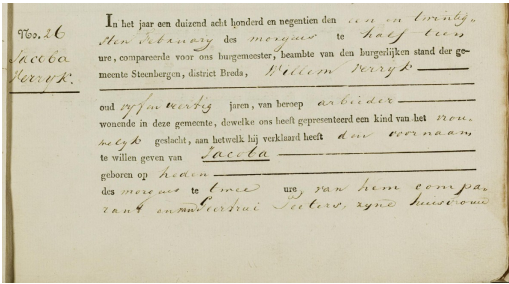 No. 26
Jacoba
Verryk.
In het jaar een duizend acht honderd en negentien den een en twintig-
sten february des morgens te half tien
ure, compareerde voor ons burgemeester, beambte van den burgerlijken stand der ge-
meente Steenbergen, district Breda, Willem Verryk
oud vyf en veertig jaren, van beroep arbieder
wonende in deze gemeente, dewelke ons heeft gepresenteerd een kind van het vrou-
welyk geslacht, aan hetwelk hij verklaard heeft den voornaam
te willen geven van Jacoba
geboren op heden
des morgens te twee ure, van hem compa-
rant en van Peeters, zyne huisvrouw